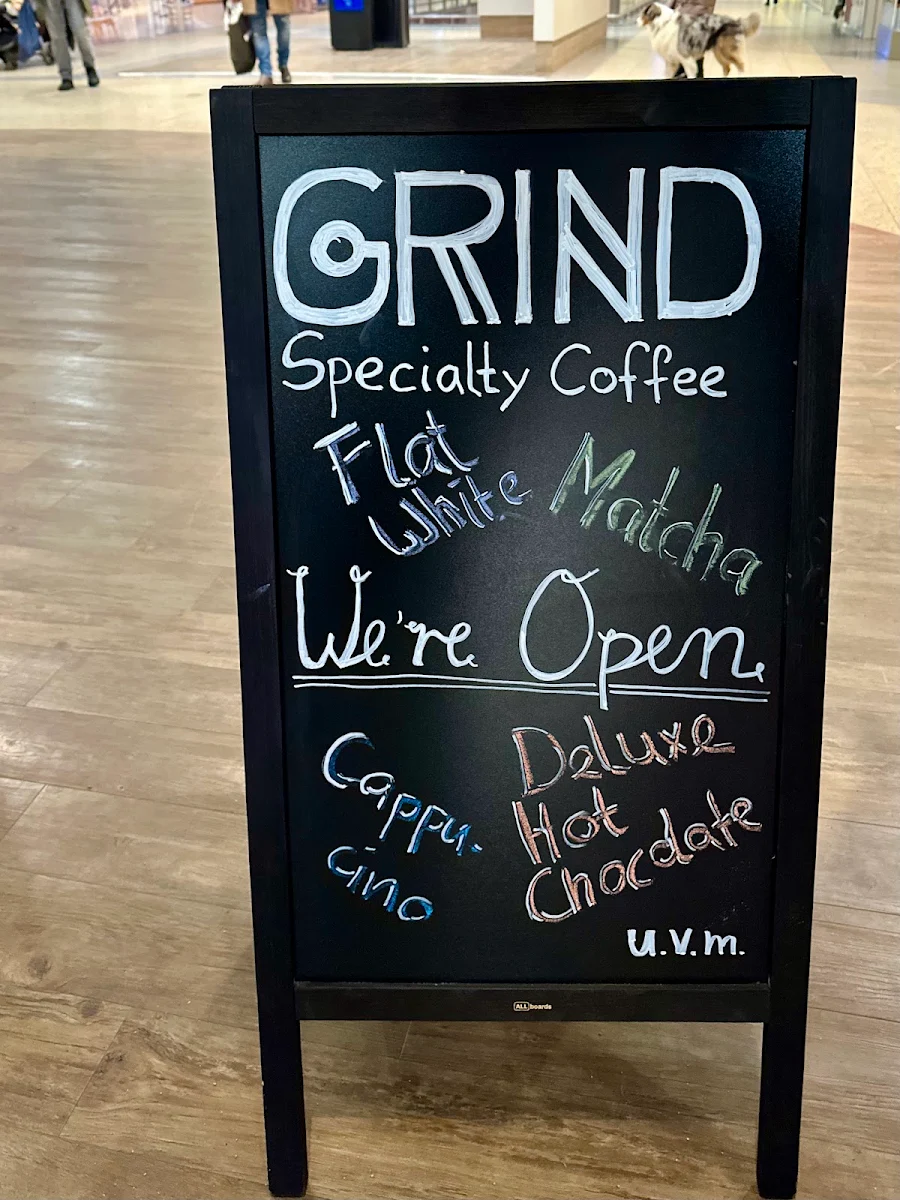 GRIND
Specialty Coffee
Flat
White
Matcha
We're Open
Cappu-
cino
Deluxe
Hot
Chocdate
u.v.m.
ALL boards